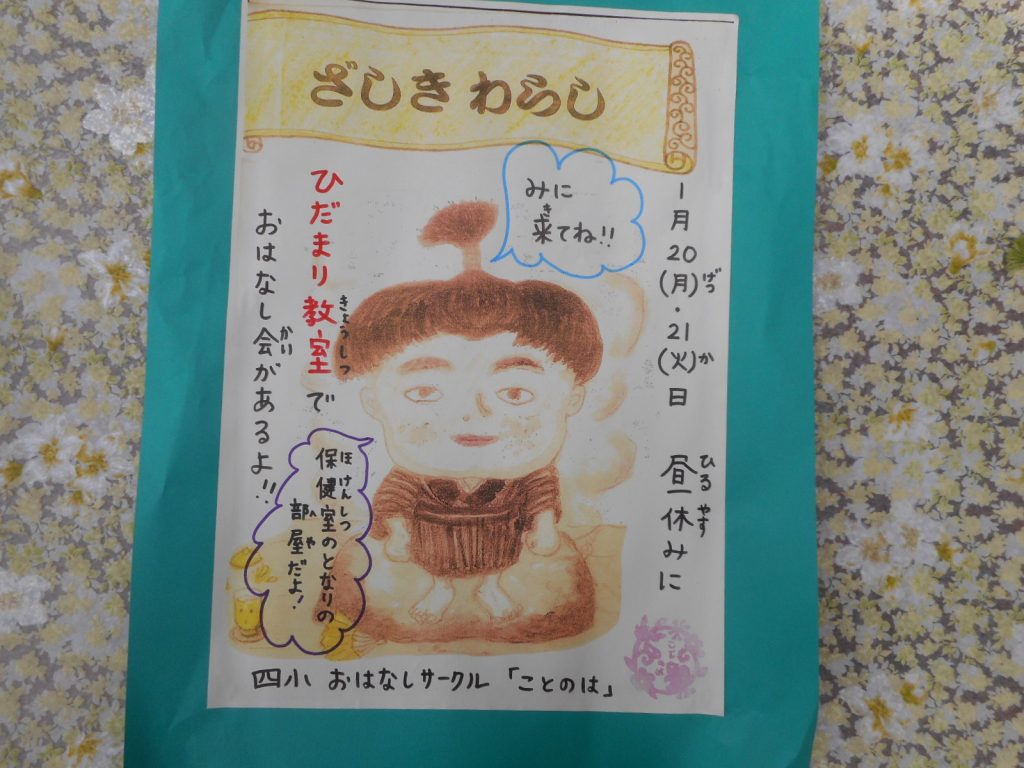 ざしきわらし
みに
来てね!!
き
1月20(月)・21(火)日 昼休みに
げつ か ひる やす
ひだまり教室で
きょうしつ
おはなし会があるよ!!
かい
保健室のとなりの
ほけんしつ
部屋だよ!
へや
四小 おはなしサークル「ことのは」